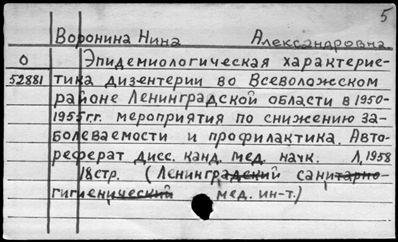 5
Воронина Нина Александровна
О Эпидемиологическая характерис-
52881 тика дизентерии во Всеволожском
районе Ленинградской области в 1950-
1955г.г. мероприятия по снижению за-
болеваемости и профилактика. Авто-
реферат дисс. канд. мед. начк. Л, 1958
18стр. (Ленинградский санитарно-
гигиенический мед. ин-т.)